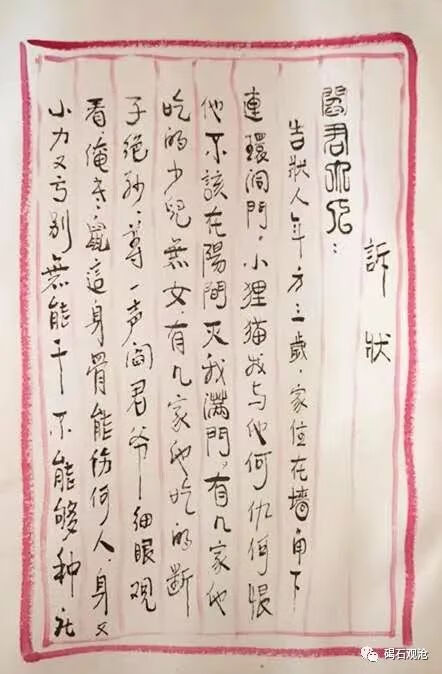 訴狀
閻君
告狀人年方三歲，家住在墙角下
連環洞門，小狸猫我与他何仇何恨
他不該在陽間灭我满門，有几家他
吃的少兒無女，有几家他吃的断
子绝孙，尊一声阎君爷一细眼观
看，俺老鼠這身骨能伤何人，身又
小力又亏别無能干不能够种庄
碣石观沧